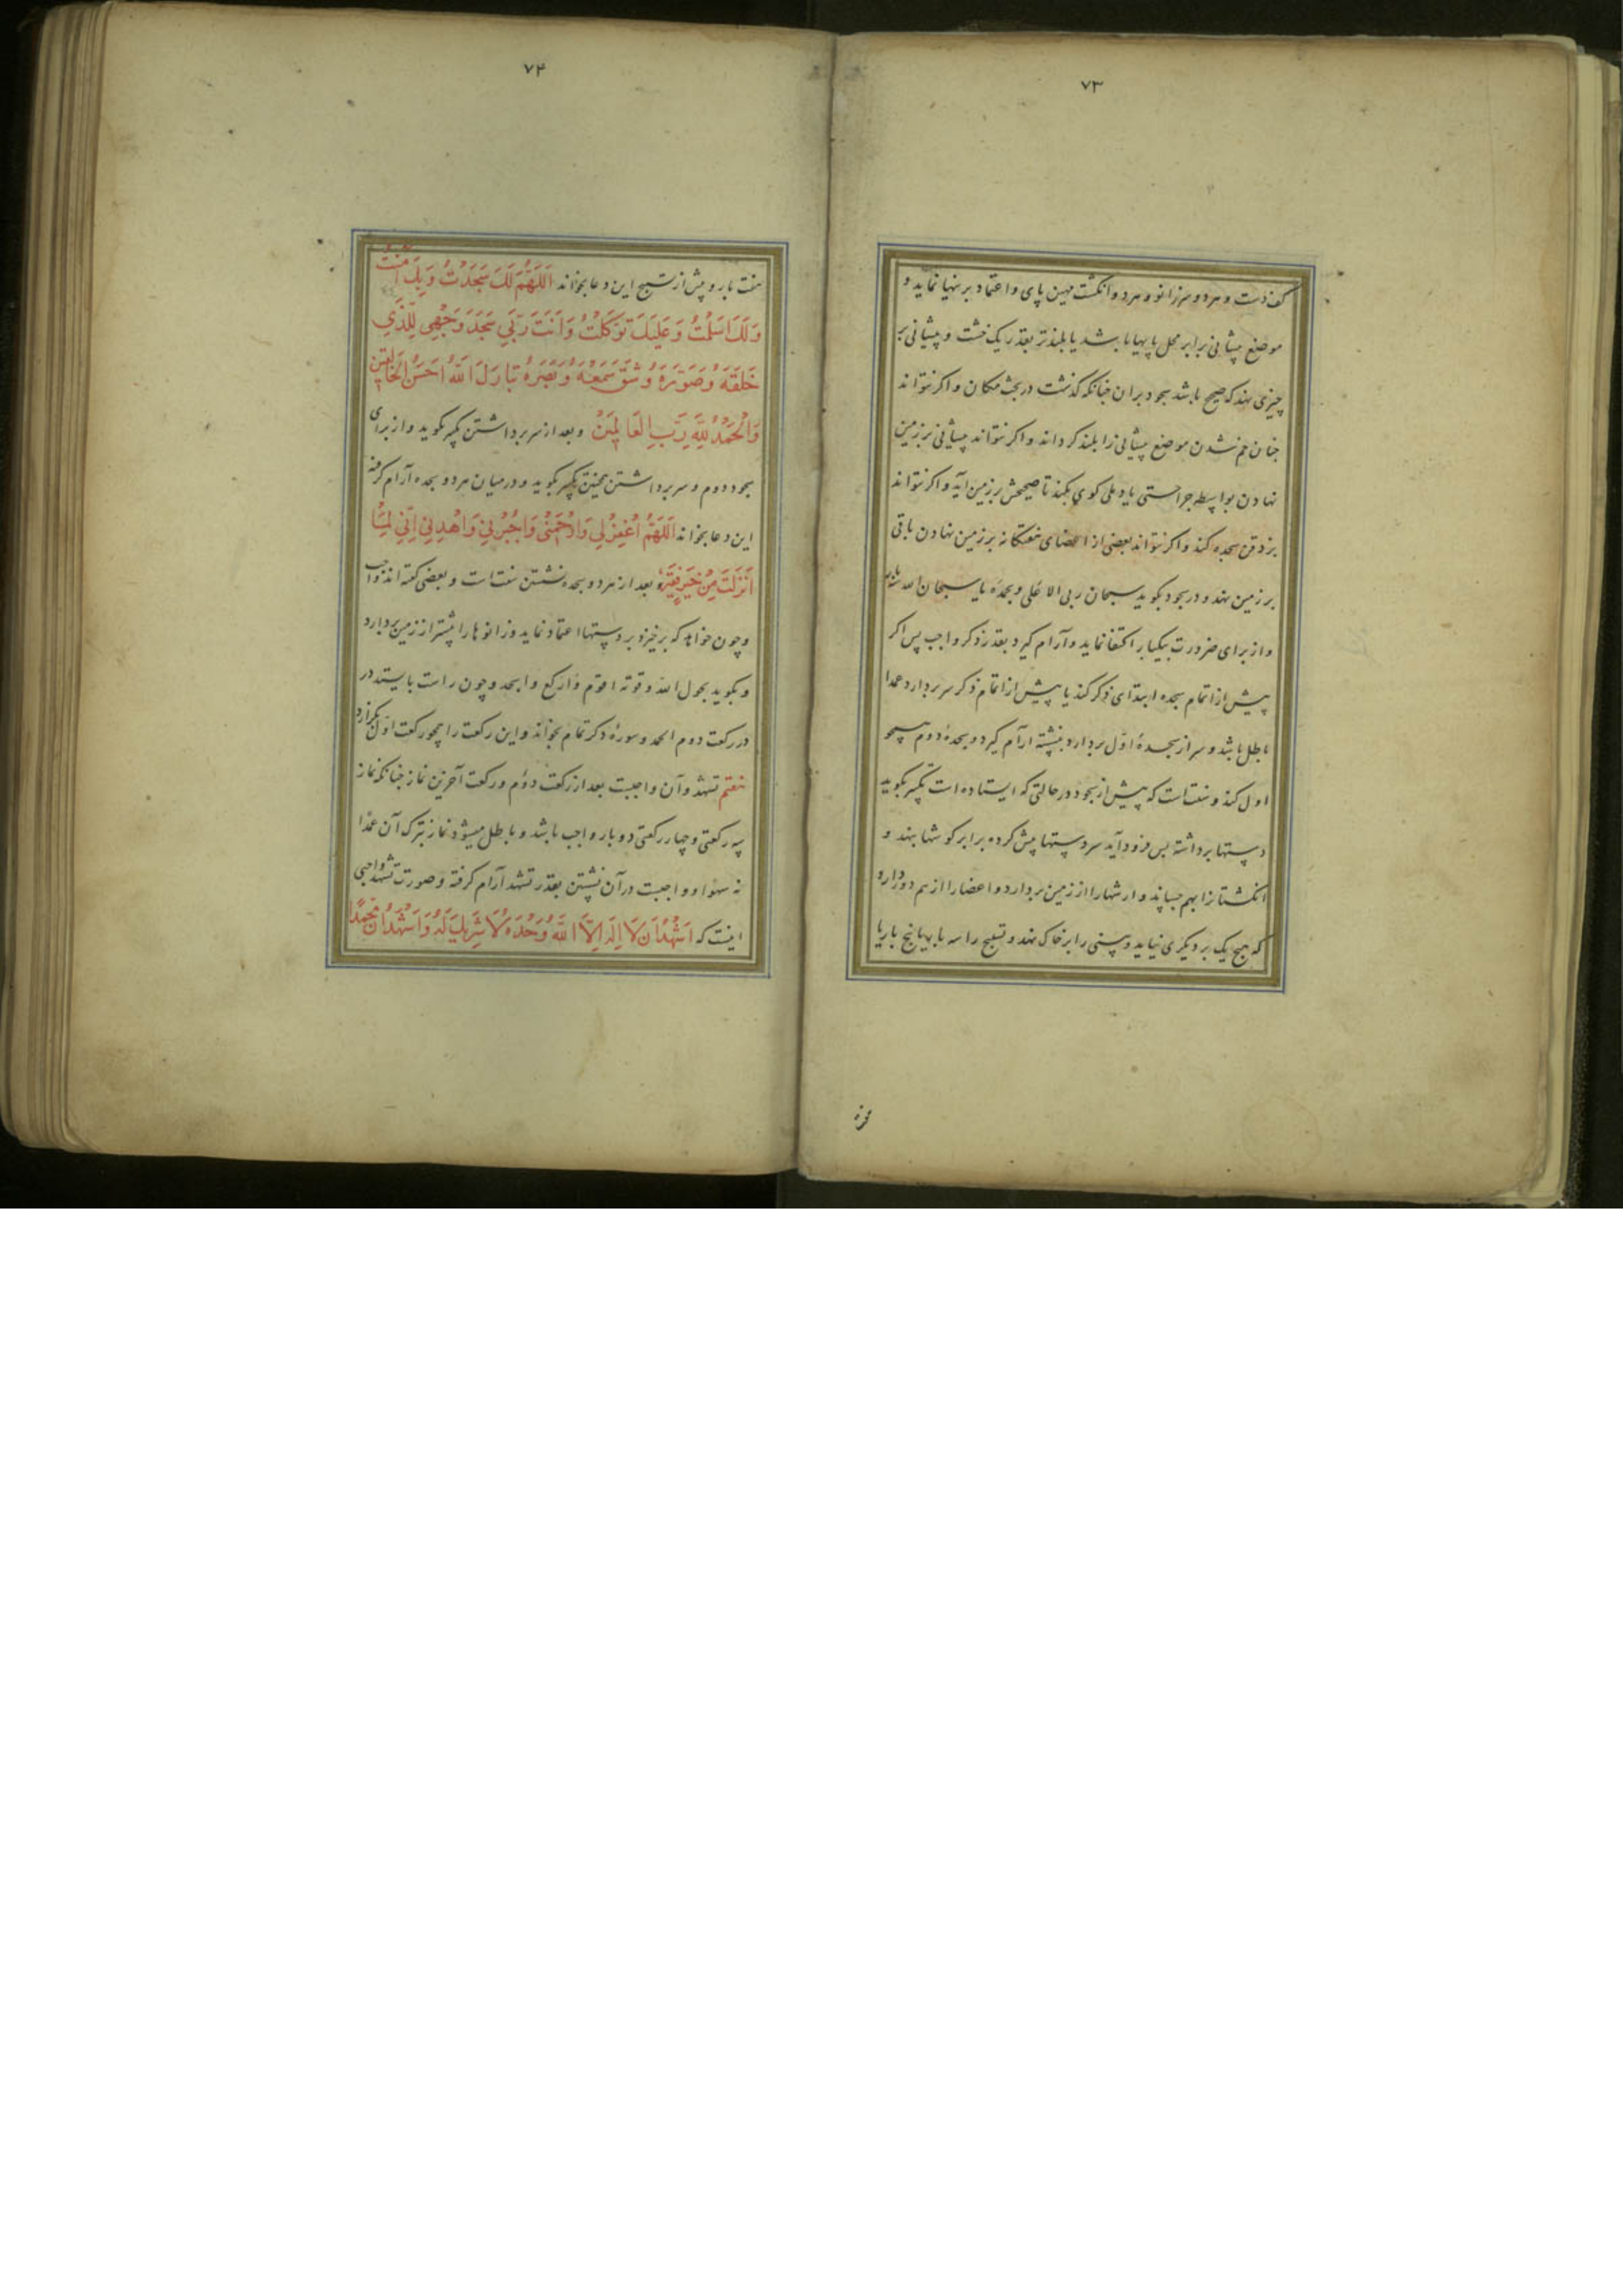 ۷۳
کف دست و هر دو سر زانو و هر دو انکشت مهین پای و اعتماد بر نهیا نماید و
موضع پیشانی برابر محل پایها باشد یا بلندتر بقدر یک خشت و پیشانی بر
چیزی نهد که صحیح باشد سجود بر ان چنانکه کذشت در بحث مکان و اکر نتواند
چنان خم شدن موضع پیشانی را بلند کرداند و اکر نتواند پیشانی بر زمین
نهادن بواسطه جراحتی یا دملی کوی بکند تا صحیحش بر زمین آید و اکر نتواند
بر ذقن سجده کند و اکر نتواند بعضی از اعضای هفتکانه بر زمین نهادن باقی
بر زمین نهد و در سجود بکوید سبحان ربی الاعلی و بحمده یا سبحان الله سه بار
و از برای ضرورت بیکبار اکتفا نماید و آرام کیرد بقدر ذکر واجب پس اکر
پیش از اتمام سجده ابتدای ذکر کند یا پیش از اتمام ذکر سر بردارد عمدا
باطل باشد و سر از سجدهٔ اوّل بردارد و بنشسته آرام کیرد و سجدهٔ دوم همچو
اول کند و سنت است که پیش از سجود در حالتی که ایستاده است تکبیر بکوید
دستها برداشته پس فرود آید سر دستها پیش کرده برابر کوشها بنهد و
انکشتانرا بهم چسپاند و ارشها را از زمین بردارد و اعضا را از هم دور دارد
که هیچ یک بر دیکری نیاید و بینی را بر خاک نهد و تسبیح را سه بار یا پنج بار یا
۷۴
هفت بار و پیش از تسبیح این دعا بخواند اَللّهُمَّ لَكَ سَجَدْتُ وَ بِكَ آمَنْتُ
وَلَكَ اَسْلَمْتُ وَ عَلَيْكَ تَوَكَّلْتُ وَ اَنْتَ رَبّي سَجَدَ وَجْهِي لِلَّذِي
خَلَقَهُ وَ صَوَّرَهُ وَ شَقَّ سَمْعَهُ وَ بَصَرَهُ تَبَارَكَ اللهُ اَحْسَنُ الخَالِقِين
وَالْحَمْدُ لِلّهِ رَبِّ العَالَمِينَ و بعد از سر برداشتن تکبیر بکوید و از برای
سجود دوم و سر برداشتن همچنین تکبیر بکوید و در میان هر دو سجده آرام کرفته
این دعا بخواند اَللّهُمَّ اغْفِرْ لِي وَ ارْحَمْنِي وَ اجْبُرْنِي وَ اهْدِنِي اِنّي لِمَا
اَنْزَلْتَ مِنْ خَيْرٍ فَقِيرٌ و بعد از هر دو سجده نشستن سنت است و بعضی کفته اند واجب
و چون خواهد که برخیزد بر دستها اعتماد نماید و زانوها را پیشتر از زمین بردارد
و بکوید بحول الله و قوته اقوم و ارکع و اسجد و چون راست بایستد در
در رکعت دوم الحمد و سورهٔ دکر تمام بخواند و این رکعت را همچو رکعت اول بکزارد
هفتم تشهد و آن واجبست بعد از رکعت دوّم و رکعت آخرین نماز چنانکه نماز
سه رکعتی و چهار رکعتی دو بار واجب باشد و باطل میشود نماز بترک آن عمدا
نه سهوا و واجبست در آن نشستن بقدر تشهد آرام کرفته و صورت تشهد واجبی
اینست که اَشْهَدُ اَنْ لَا اِلهَ اِلَّا اللهُ وَحْدَهُ لَا شَرِيكَ لَهُ وَ اَشْهَدُ اَنَّ مُحَمَّدًا